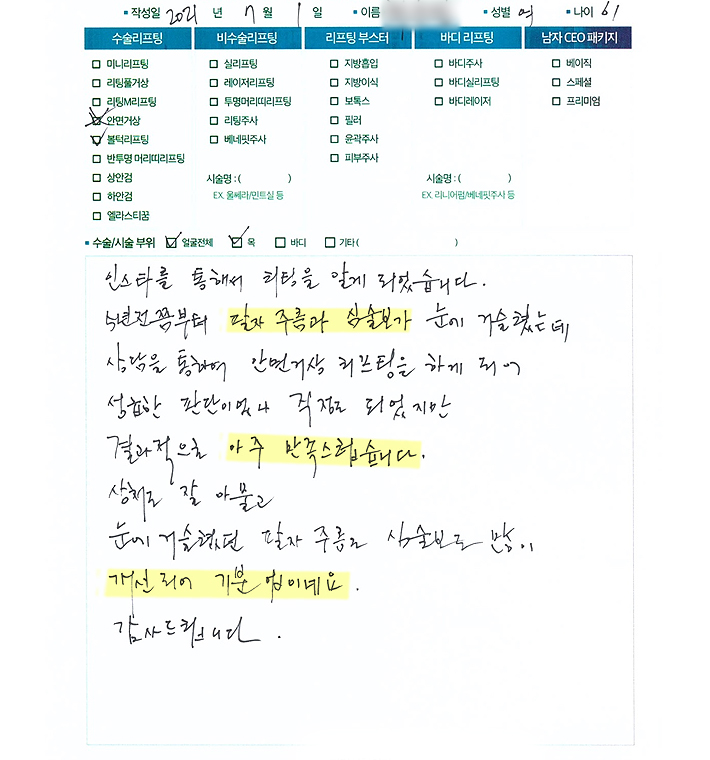 작성일 2021 년 7 월 1 일 이름 성별 여 나이 61
수술리프팅 비수술리프팅 리프팅 부스터 바디 리프팅 남자 CEO 패키지
미니리프팅 실리프팅 지방흡입 바디주사 베이직
리팅풀거상 레이저리프팅 지방이식 바디실리프팅 스페셜
리팅M리프팅 투명머리띠리프팅 보톡스 바디레이저 프리미엄
안면거상 리팅주사 필러
볼턱리프팅 베네핏주사 윤곽주사
반투명 머리띠리프팅 피부주사
상안검 시술명 : ( ) 시술명 : ( )
하안검 EX. 울쎄라/민트실 등 EX. 리니어펌/베네핏주사 등
엘라스티꿈
수술/시술 부위 얼굴전체 목 바디 기타 ( )
인스타를 통해서 리팅을 알게 되었습니다.
5년전쯤부터 팔자 주름과 심술보가 눈에 거슬렸는데
상담을 통하여 안면거상 리프팅을 하게 되어
성급한 판단이었나 걱정도 되었지만
결과적으로 아주 만족스럽습니다.
상처도 잘 아물고
눈에 거슬렸던 팔자 주름도 심술보도 많이
개선되어 기분 업이네요.
감사드립니다.